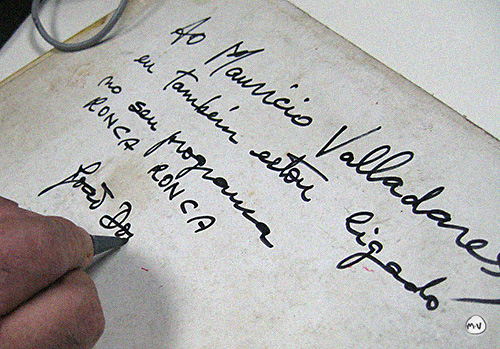 Ao Mauricio Valladares
eu também estou ligado
no seu programa
RONCA RONCA
João Do
M·V